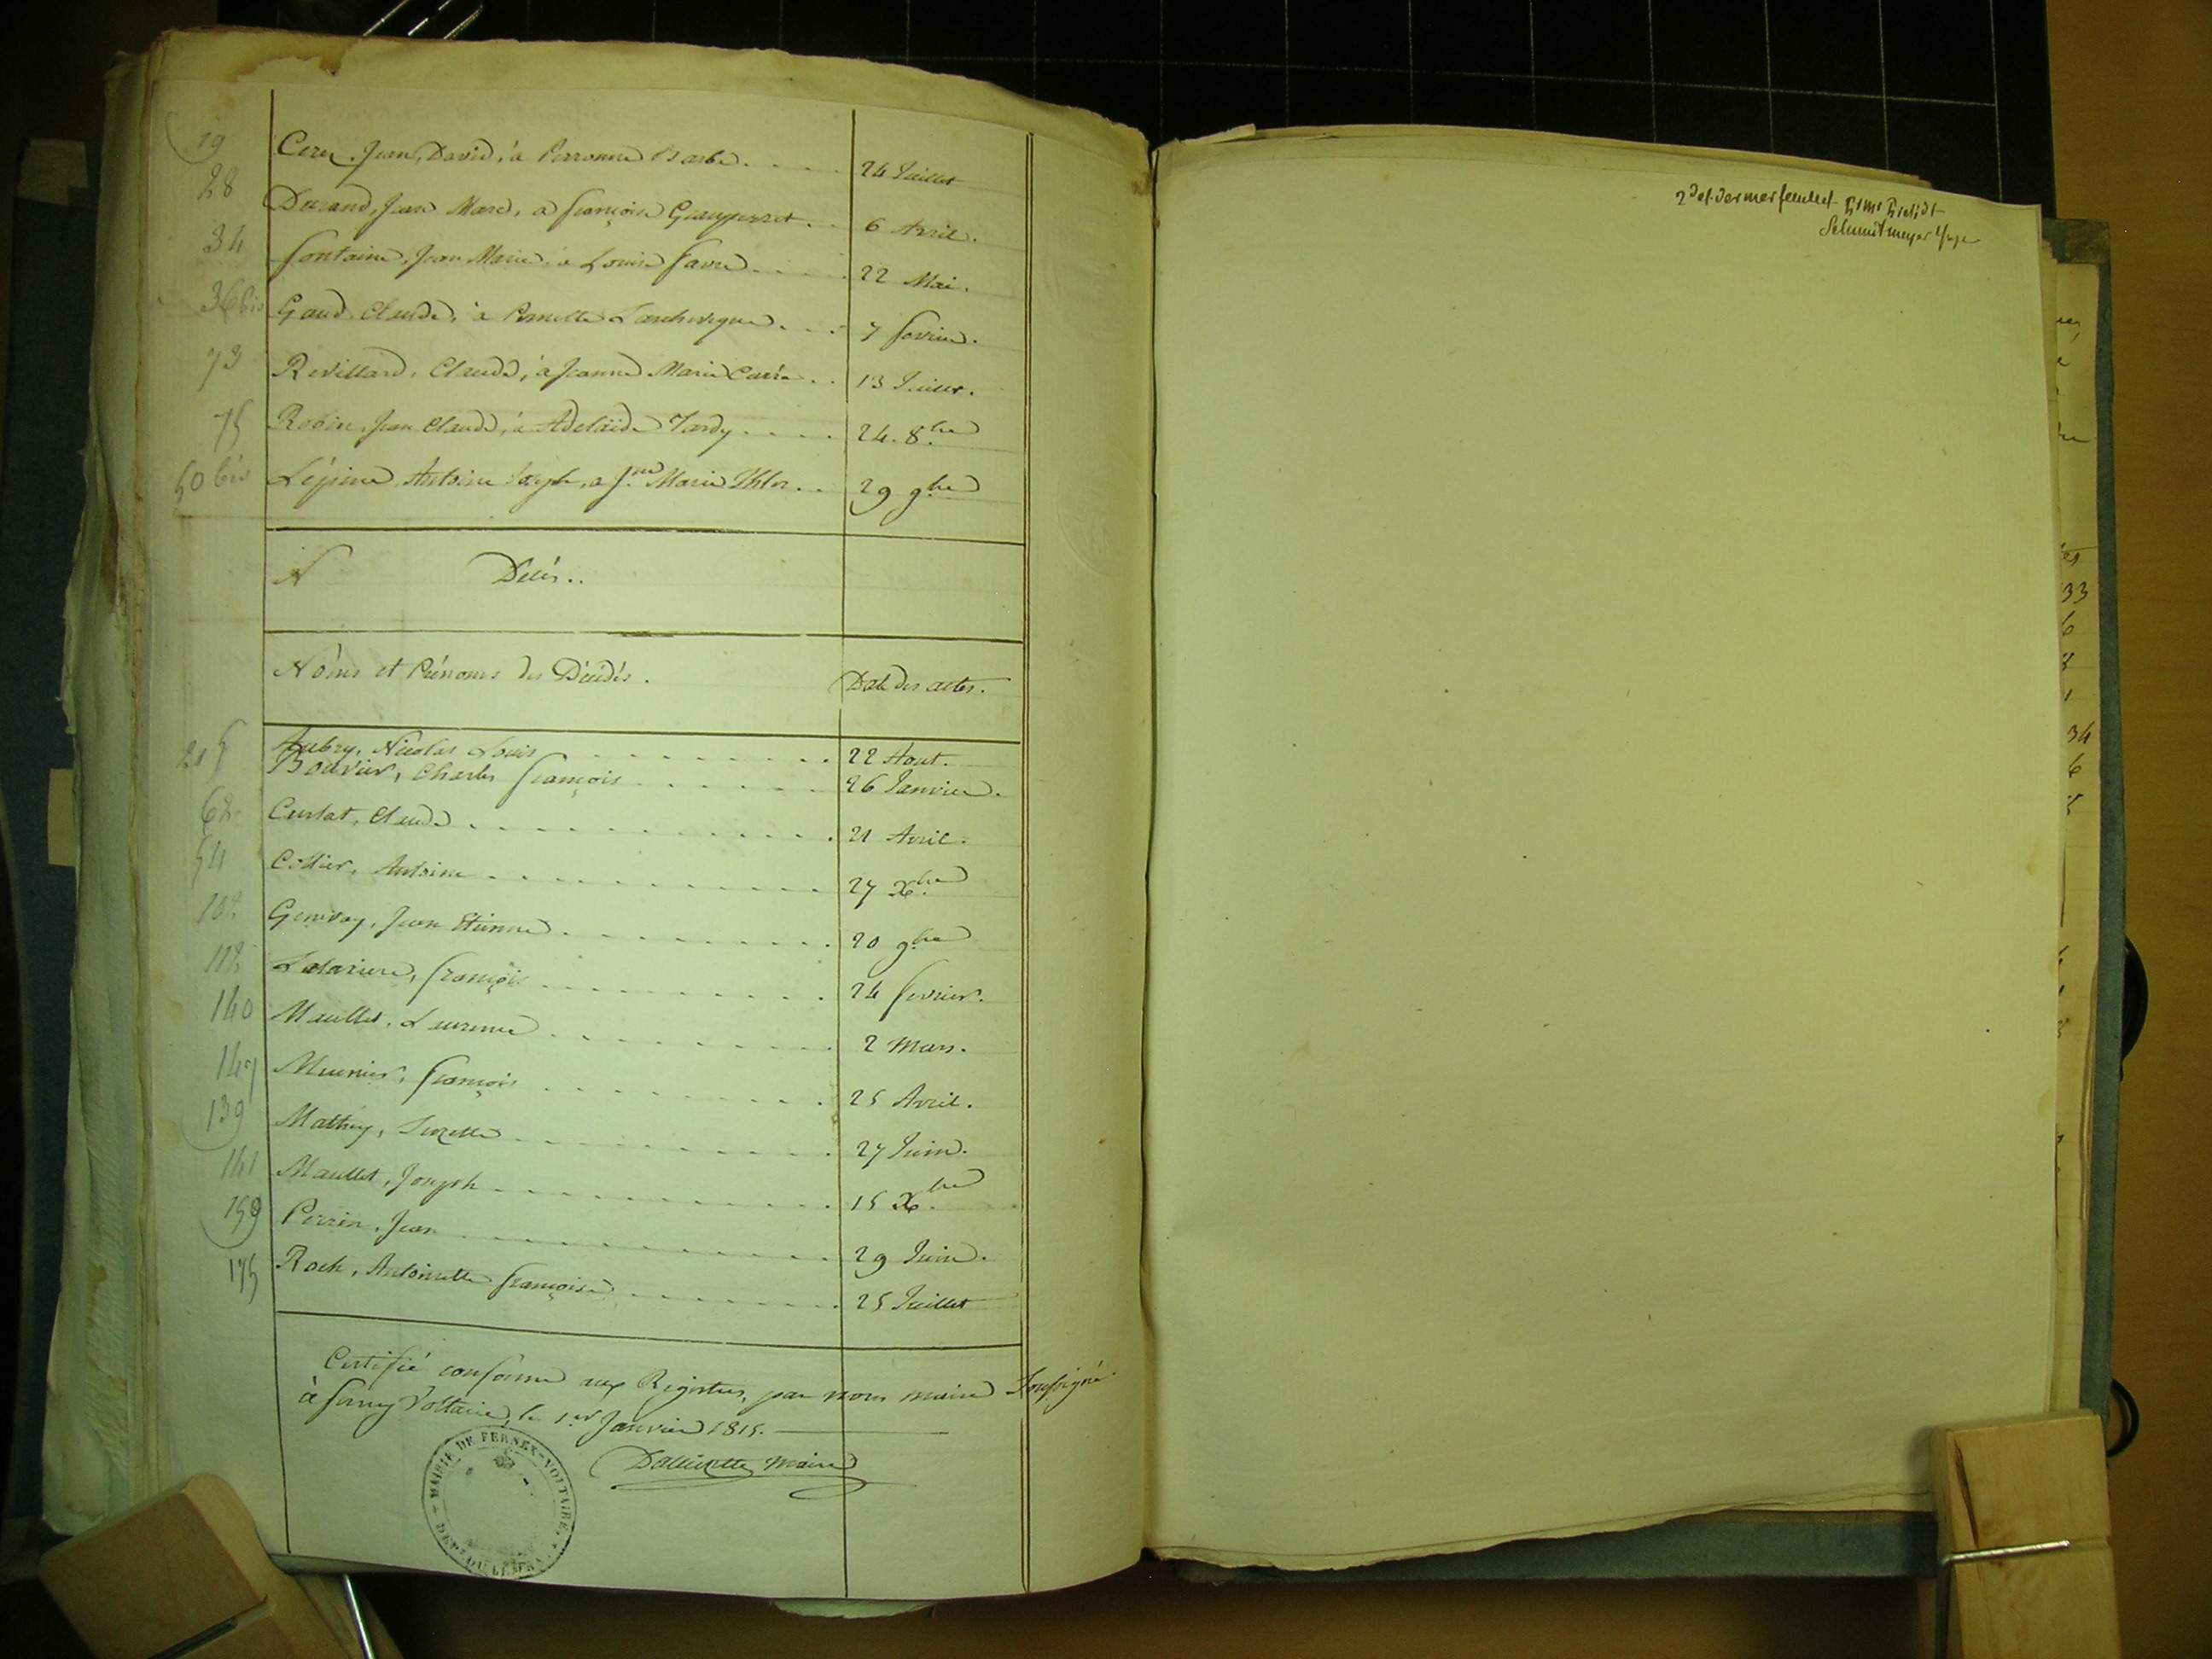 19 Cerez. Jean, David, à Perronne Barbe. . . . . 24 Juillet
28 Durand, Jean Marc, à françoise Granperret. . . 6 Avril.
34 fontaine, Jean Marie, à Louise favre . . . . 22 Mai.
36 bis Gaud Claude, à Pernette Larchevêque . . . 7 fevrier.
73 Revillard, Claude, à Jeanne Marie Carré . . 13 Juillet.
75 Robin, Jean Claude, à Adelaïde Tardy . . . . 24. 8.bre
50 bis Lépine Antoine Joseph, à J.ne Marie . . 29 9bre
N Décès..
Noms et Prénoms des Décédés. Date des actes.
5 Aubry, Nicolas Louis . . . . . . . . 22 Aout.
21 Bouvier, Charles françois . . . . . . 26 Janvier.
62 Curlat, Claude . . . . . . . . . . . 21 Avril.
54 Collier, Antoine . . . . . . . . . . 27 Xbre
104 Genevay, Jean Etienne . . . . . . . . 20 9bre
118 françois . . . . . . . . . 24 fevrier.
140 Maullet, Laurence . . . . . . . . 2 Mars.
147 Meunier, françois . . . . . . . . 25 Avril.
139 Mathey, Suzette . . . . . . . . . 27 Juin.
141 Maullet, Joseph . . . . . . . . . 15 Xbre
159 Perrin, Jean . . . . . . . . . . 29 Juin.
175 Roch, Antoinette françoise . . . . . . 25 Juillet
Certifié conforme aux Registres, par nous maire Soussigné
à ferney Voltaire, le 1er Janvier 1815.
maire
MAIRIE DE FERNEX-VOLTAIRE.
DEPT DU LEMAN.
2d et dernier feuillet